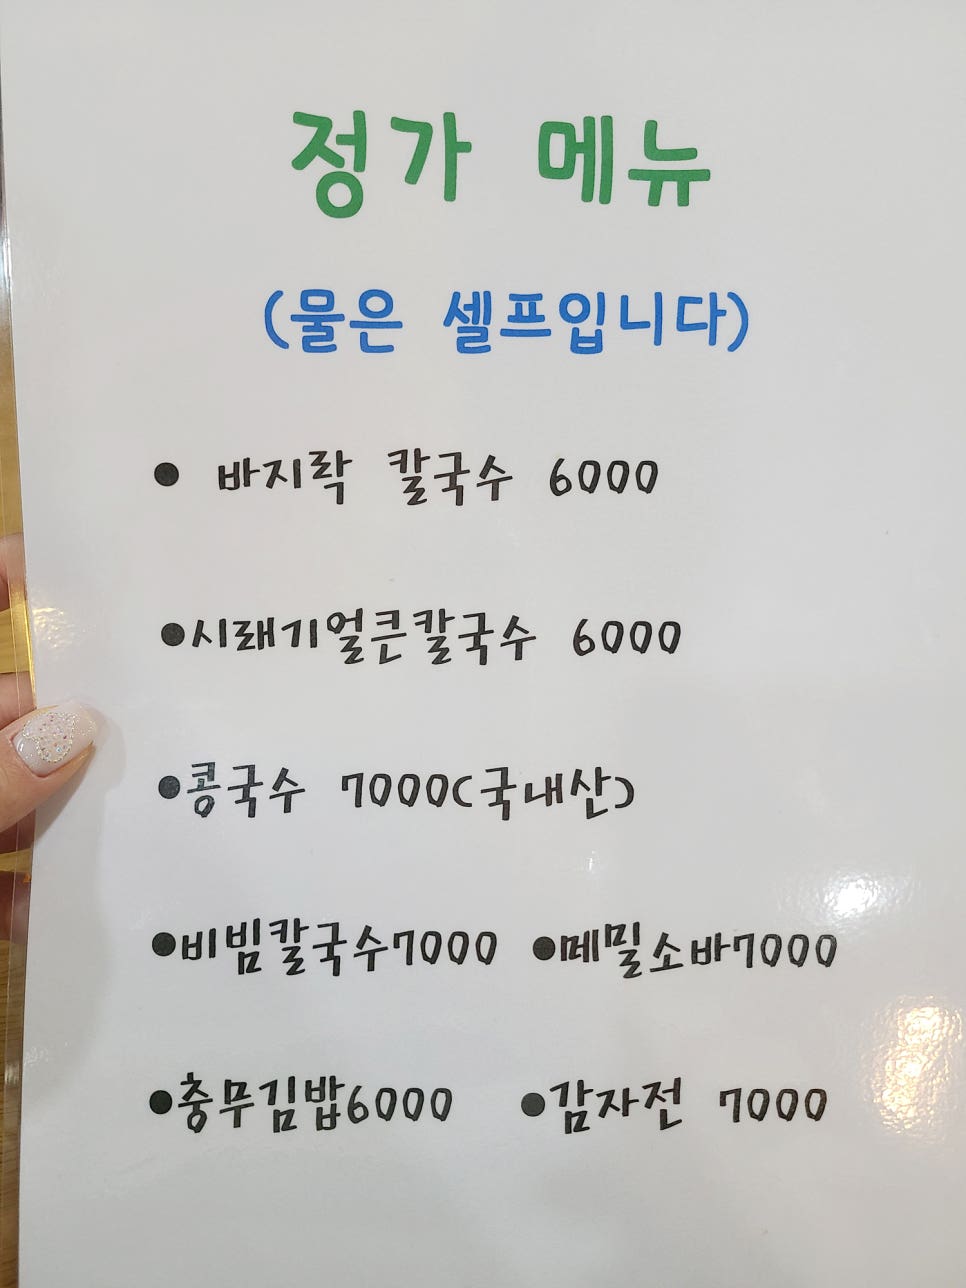 정가 메뉴
(물은 셀프입니다)
● 바지락 칼국수 6000
●시래기얼큰칼국수 6000
●콩국수 7000(국내산)
●비빔칼국수7000 ●메밀소바7000
●충무김밥6000 ●감자전 7000